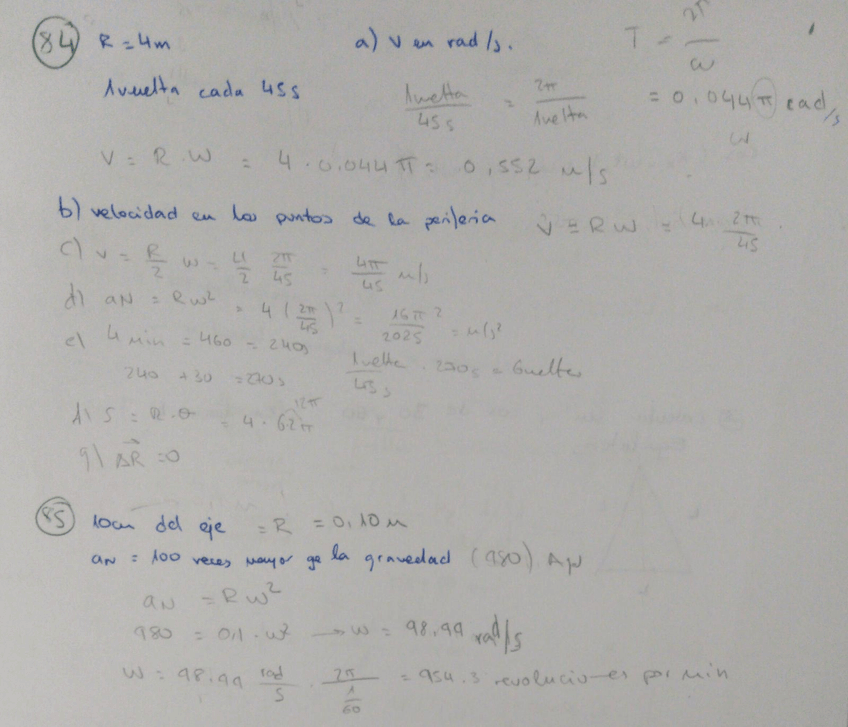 84 R = 4m a) v en rad/s. T = 2π/ω
1 vuelta cada 45 s 1 vuelta/45 s = 2π/1 vuelta = 0.044 π rad/s
ω
V = R . W = 4 . 0.044 π = 0,552 m/s
b) velocidad en los puntos de la periferia V = R W = 4 . 2π/45
c) v = R/2 W = 4/2 2π/45 = 4π/45 m/s
d) aN = R W² = 4 (2π/45)² = 16π²/2025 = m/s²
e) 4 min = 460 = 240s
240 + 30 = 270s 1 vuelta/45 s . 270 s = 6 vueltas
f) S = R . θ = 4 . 6 2π 12π
g) ΔR = 0
85 10cm del eje = R = 0,10 m
aN = 100 veces mayor qe la gravedad (980) AN
aN = R W²
980 = 0,1 . ω² → W = 98.99 rad/s
W = 98.99 rad/s . 2π/1/60 = 954.3 revoluciones por min